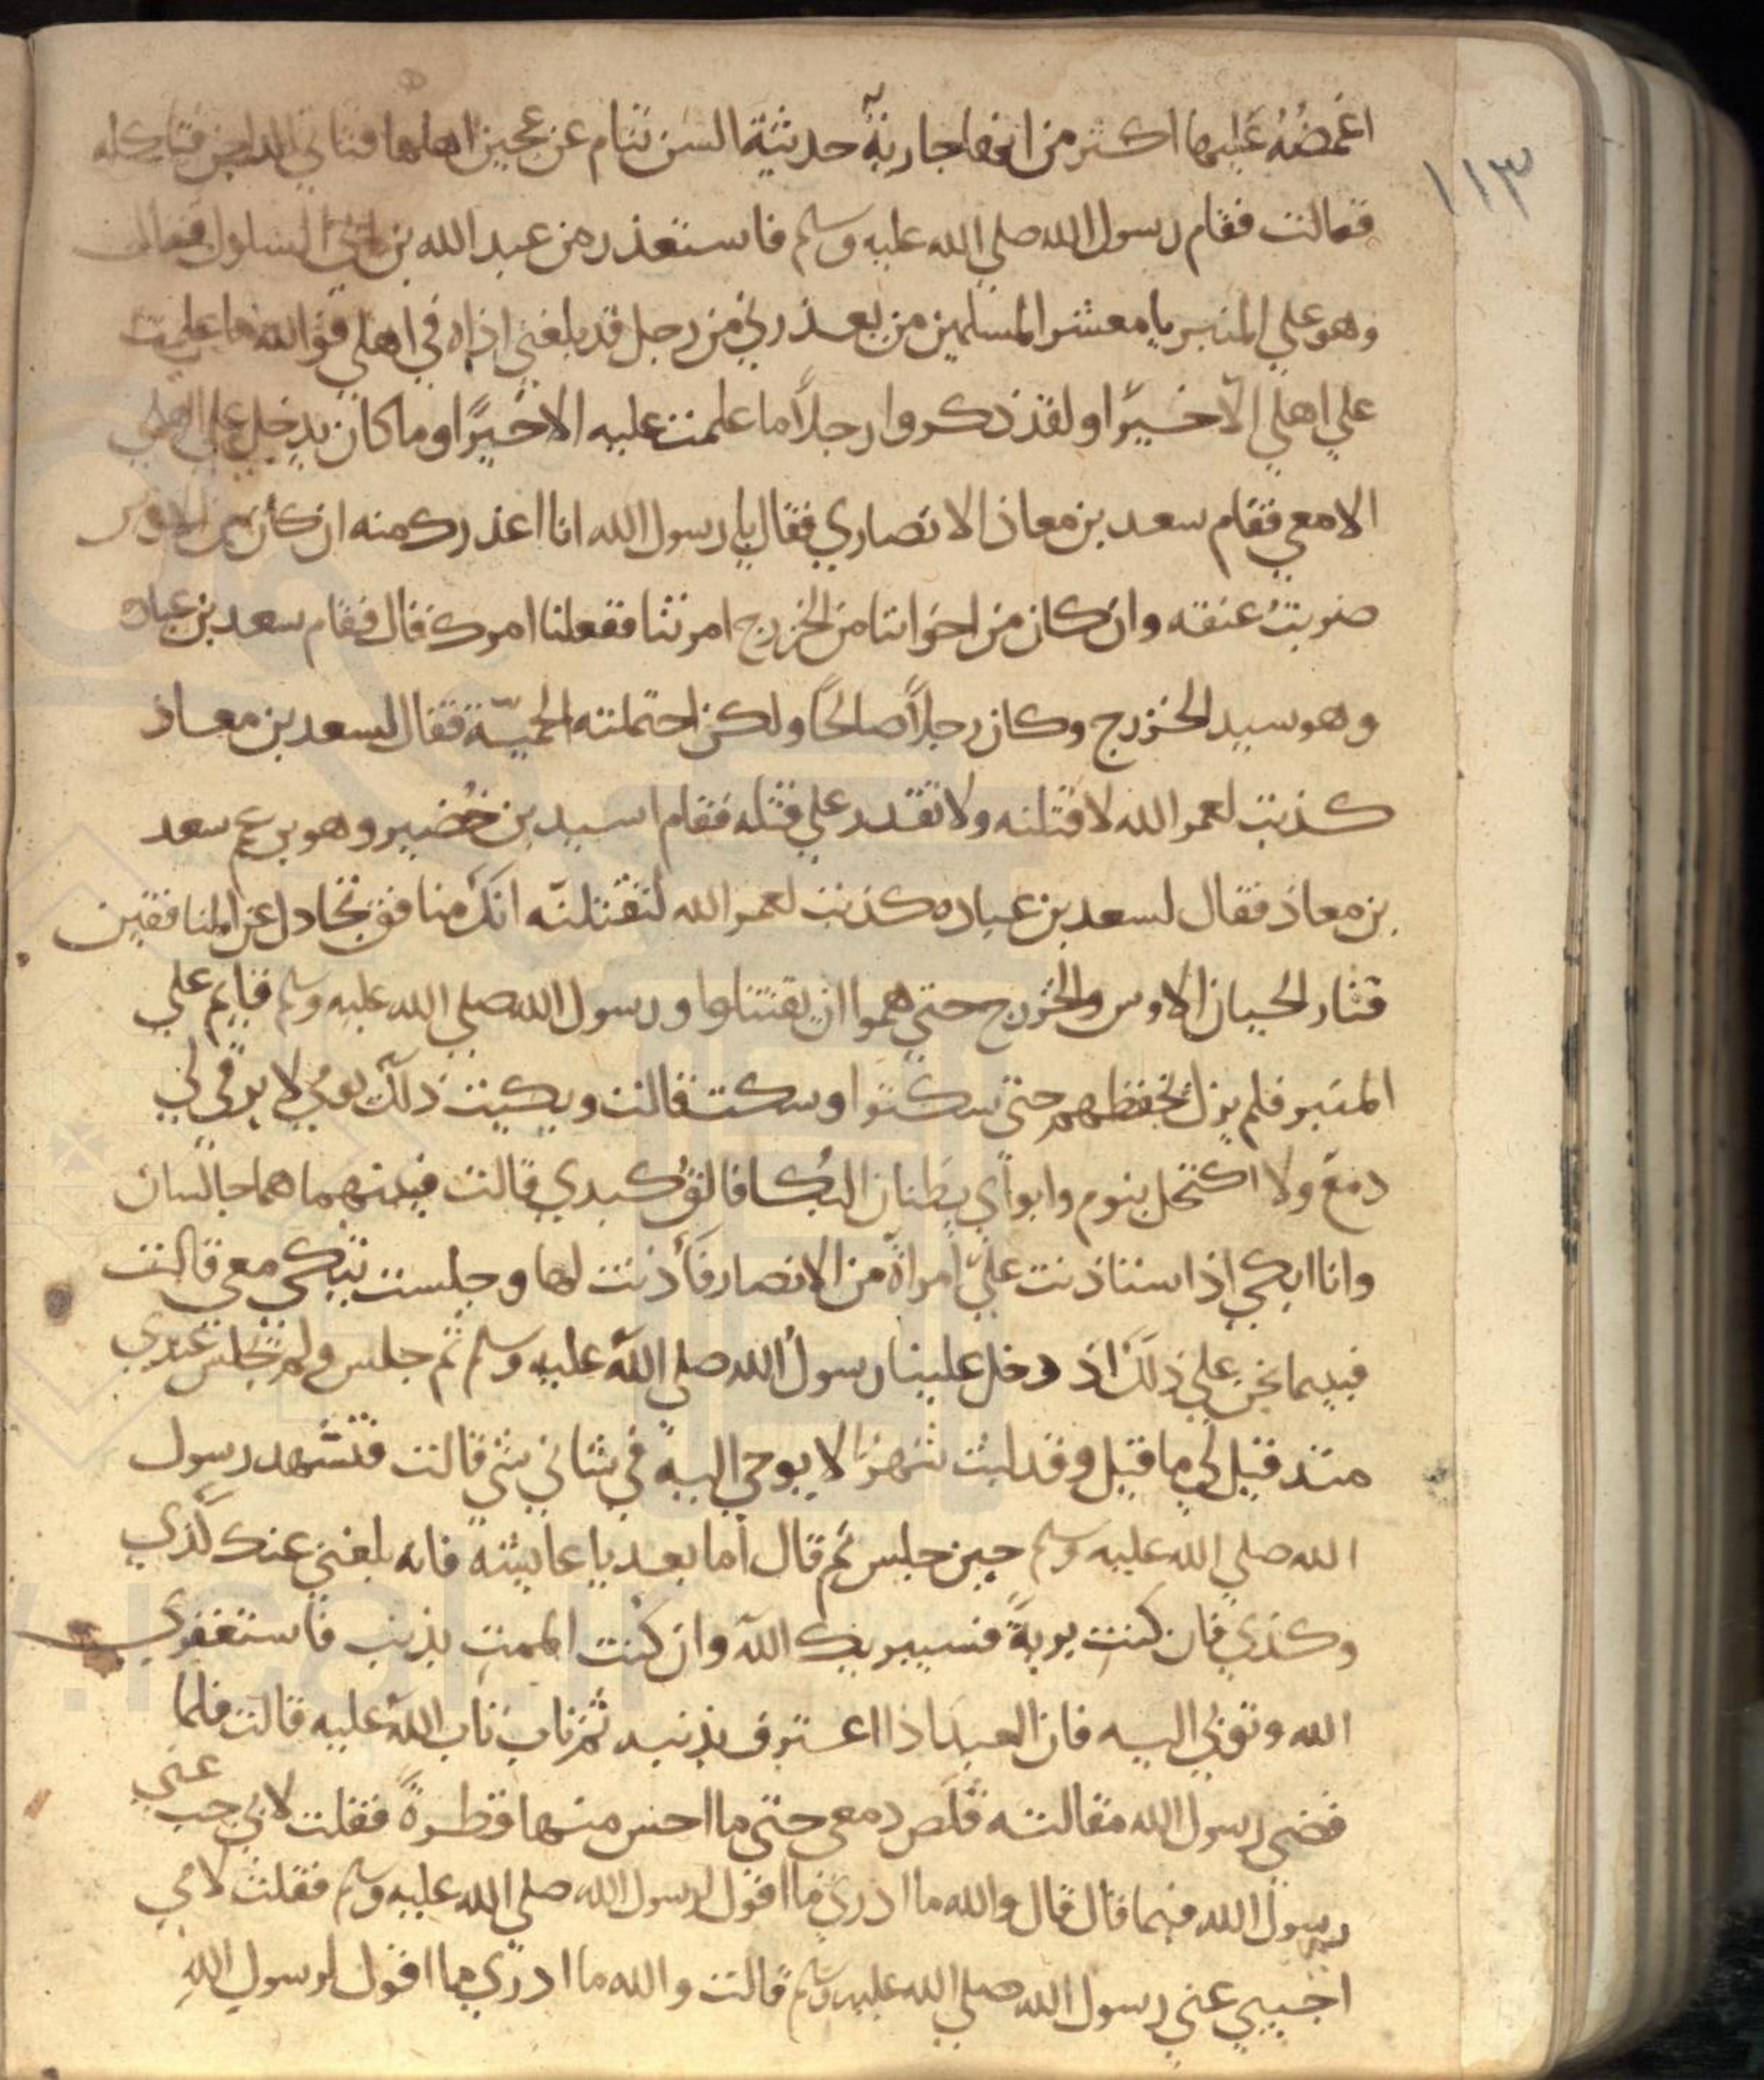 ١١٣
اغمضه عليها اكثر من انها جارية حديثة السن تنام عن عجين اهلها فتاتي الداجن فتاكله
فقالت فقام رسول الله صلي الله عليه وسلم فاستعذر من عبد الله بن ابي السلول فقالت
وهو علي المنبر يا معشر المسلمين من يعذرني من رجل قد بلغني اذاه في اهلي فوالله ما علمت
علي اهلي الا خيرا ولقد ذكروا رجلاً ما علمت عليه الا خيرًا وما كان يدخل علي اهلي
الا معي فقام سعد بن معاذ الانصاري فقال يا رسول الله انا اعذرك منه ان كان من الاوس
ضربتُ عنقه وان كان من اخواننا من الخزرج امرتنا ففعلنا امرك قال فقام سعد بن عباده
وهو سيد الخزرج وكان رجلاً صالحًا ولكن احتملته الحميّة فقال لسعد بن معاذ
كذبت لعمر الله لا قتلته ولا تقدر علي قتله فقام اسيد بن خُضير وهو بن عم سعد
بن معاذ فقال لسعد بن عباده كذبت لعمر الله لنقتلنّه انكَ منافق تجادل عن المنافقين
فثار الحيان الاوس والخزرج حتي هموا ان يقتتلوا ورسول الله صلي الله عليه وسلم قايم علي
المنبر فلم يزل يخفظهم حتي سكتوا وسكت قالت وبكيت ذلك يومي لا يرقي لي
دمع ولا اكتحل بنوم وابواي يظنان البكا فالقُ كبدي قالت فبينهما هما جالسان
وانا ابكي اذ استاذنت عليّ امراة من الانصار فأذنت لها وجلست تبكي معي قالت
فبيما نحن علي ذلك اذ دخل علينا رسول الله صلي الله عليه وسلم ثم جلس ولم يجلس عندي
منذ قيل لي ما قيل وقد لبث شهرًا لا يوحي اليه في شاني شي قالت فتشهد رسول
الله صلي الله عليه وسلم حين جلس ثم قال اما بعد يا عايشه فانه بلغني عنك كذي
وكذي فان كنت برية فسيبريك الله وان كنت الممت بذنب فاستغفري
الله وتوبي اليه فان العبد اذا اعترف بذنبه ثم تاب تاب الله عليه قالت فلما
قضي رسول الله مقالته قلص دمعي حتي ما احس منها قطرةً فقلت لابي جب عني
رسول الله فيما قال قال والله ما ادري ما اقول لرسول الله صلي الله عليه وسلم فقلت لامي
اجيبي عني رسول الله صلي الله عليه وسلم قالت والله ما ادري ما اقول لرسول الله